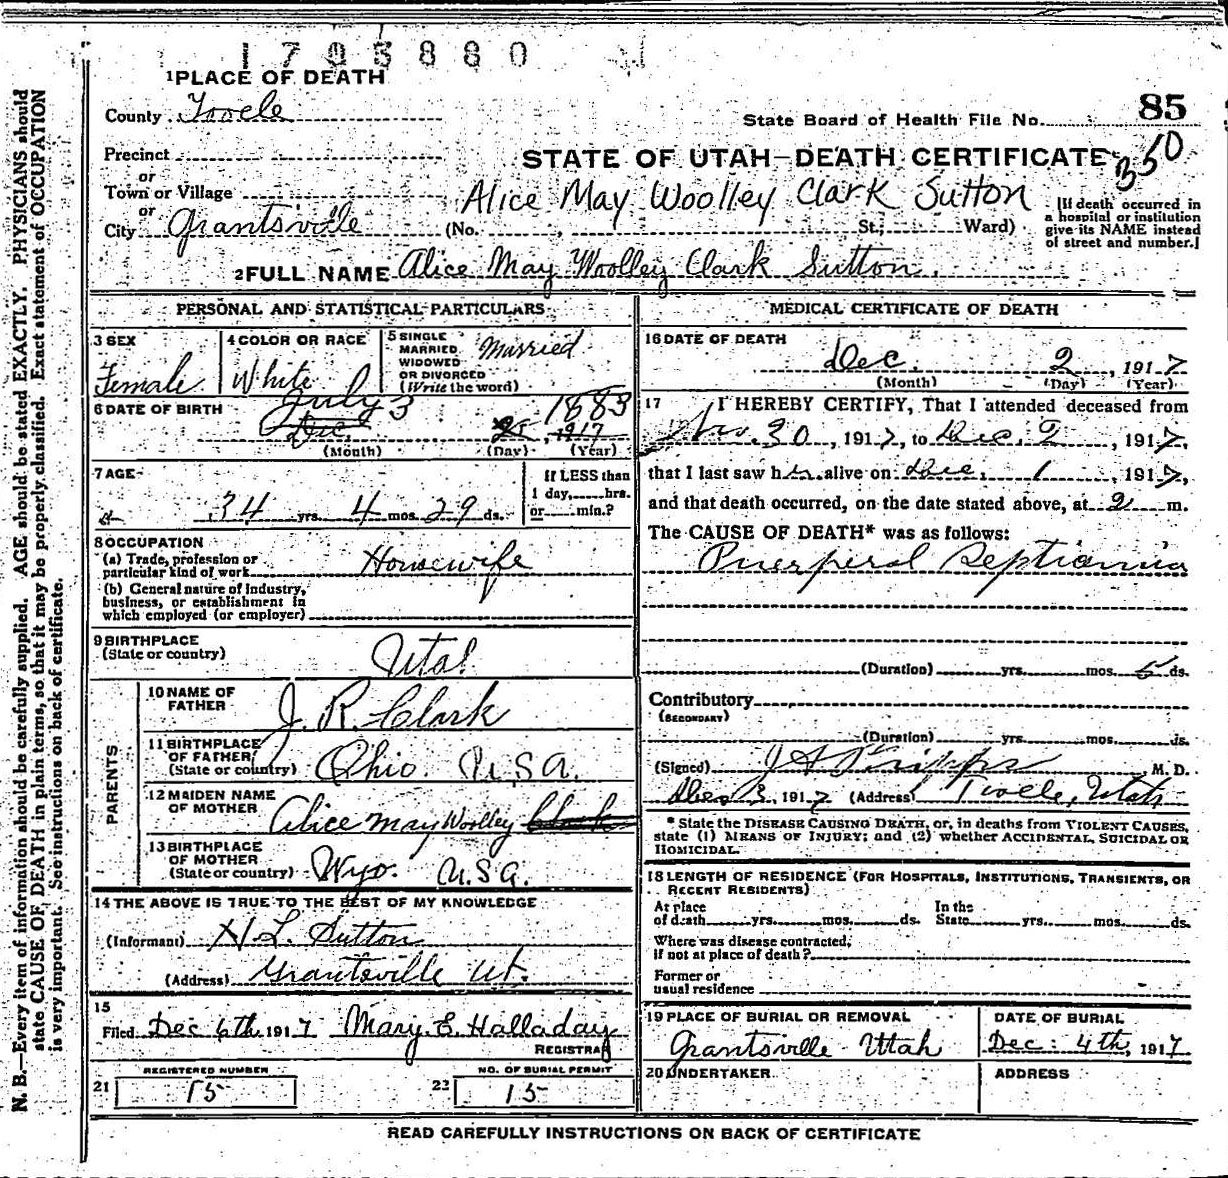 1793880
1 PLACE OF DEATH
County Tooele
State Board of Health File No. 85
Precinct
350
STATE OF UTAH—DEATH CERTIFICATE
or
Town or Village
Alice May Woolley Clark Sutton
or
City Grantsville (No. , St.; Ward)
[If death occurred in
a hospital or institution
give its NAME instead
of street and number.]
2 FULL NAME Alice May Woolley Clark Sutton
PERSONAL AND STATISTICAL PARTICULARS
3 SEX
Female
4 COLOR OR RACE
White
5 SINGLE
MARRIED
WIDOWED
OR DIVORCED
(Write the word)
Married
6 DATE OF BIRTH
July 3 1883
Dec. 25, 1917
(Month) (Day) (Year)
7 AGE
34 yrs. 4 mos. 29 ds.
If LESS than
1 day, hrs.
or min.?
8 OCCUPATION
(a) Trade, profession or
particular kind of work
Housewife
(b) General nature of industry,
business, or establishment in
which employed (or employer)
9 BIRTHPLACE
(State or country)
Utah
PARENTS
10 NAME OF
FATHER
J. R. Clark
11 BIRTHPLACE
OF FATHER
(State or country)
Ohio. U.S.A.
12 MAIDEN NAME
OF MOTHER
Alice May Woolley Clark
13 BIRTHPLACE
OF MOTHER
(State or country)
Wyo. U.S.A.
14 THE ABOVE IS TRUE TO THE BEST OF MY KNOWLEDGE
(Informant) H. L. Sutton
(Address) Grantsville Ut.
15
Filed Dec 6th 1917 Mary E. Halladay
REGISTRAR
REGISTERED NUMBER
21 15
NO. OF BURIAL PERMIT
22 15
MEDICAL CERTIFICATE OF DEATH
16 DATE OF DEATH
Dec. 2, 1917
(Month) (Day) (Year)
17 I HEREBY CERTIFY, That I attended deceased from
Nov. 30, 1917, to Dec. 2, 1917,
that I last saw her alive on Dec. 1, 1917,
and that death occurred, on the date stated above, at 2 m.
The CAUSE OF DEATH* was as follows:
Puerperal Septicemia
(Duration) yrs. mos. 5 ds.
Contributory
(SECONDARY)
(Duration) yrs. mos. ds.
(Signed) J A Phipps M. D.
Dec 3, 1917 (Address) Tooele, Utah
* State the DISEASE CAUSING DEATH, or, in deaths from VIOLENT CAUSES,
state (1) MEANS OF INJURY; and (2) whether ACCIDENTAL, SUICIDAL OR
HOMICIDAL.
18 LENGTH OF RESIDENCE (FOR HOSPITALS, INSTITUTIONS, TRANSIENTS, OR
RECENT RESIDENTS)
At place
of death yrs. mos. ds.
In the
State yrs. mos. ds.
Where was disease contracted,
if not at place of death?
Former or
usual residence
19 PLACE OF BURIAL OR REMOVAL
Grantsville Utah
DATE OF BURIAL
Dec. 4th, 1917
20 UNDERTAKER
ADDRESS
READ CAREFULLY INSTRUCTIONS ON BACK OF CERTIFICATE
N. B.—Every item of information should be carefully supplied. AGE should be stated EXACTLY. PHYSICIANS should
state CAUSE OF DEATH in plain terms, so that it may be properly classified. Exact statement of OCCUPATION
is very important. See instructions on back of certificate.